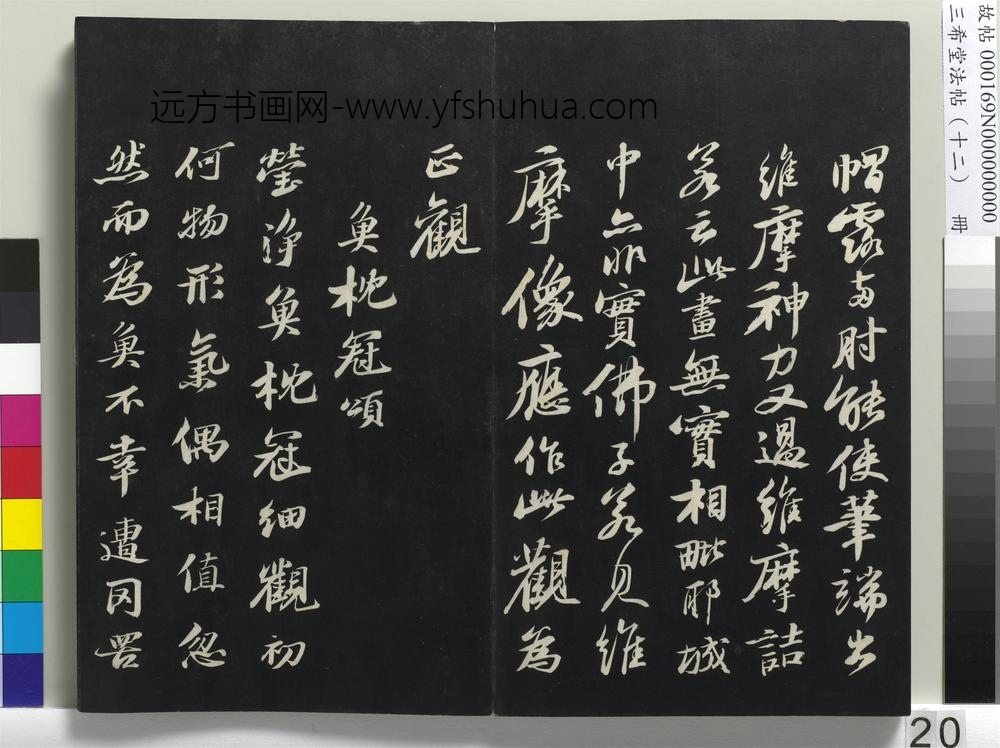 故帖 000169N000000000
三希堂法帖（十二） 冊
远方书画网-www.yfshuhua.com
帽露兩肘能使筆端出
維摩神力又過維摩詰
若云此畫無實相毗耶城
中亦非實佛子若見維
摩像應作此觀為
正觀
魚枕冠頌
瑩淨魚枕冠細觀初
何物形氣偶相值忽
然而為魚不幸遭罔罟
20